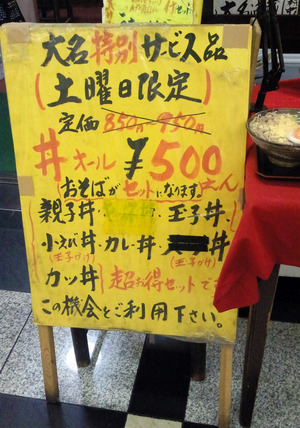 大名特別サービス品
(土曜日限定)
定価 850円 950円
丼オール ¥500
(おそばがセットになります)
親子丼・玉子丼・
小えび丼・カレー丼・丼
(玉子かけ)(玉子かけ)
カツ丼(超お得セットで
この機会をご利用下さい。